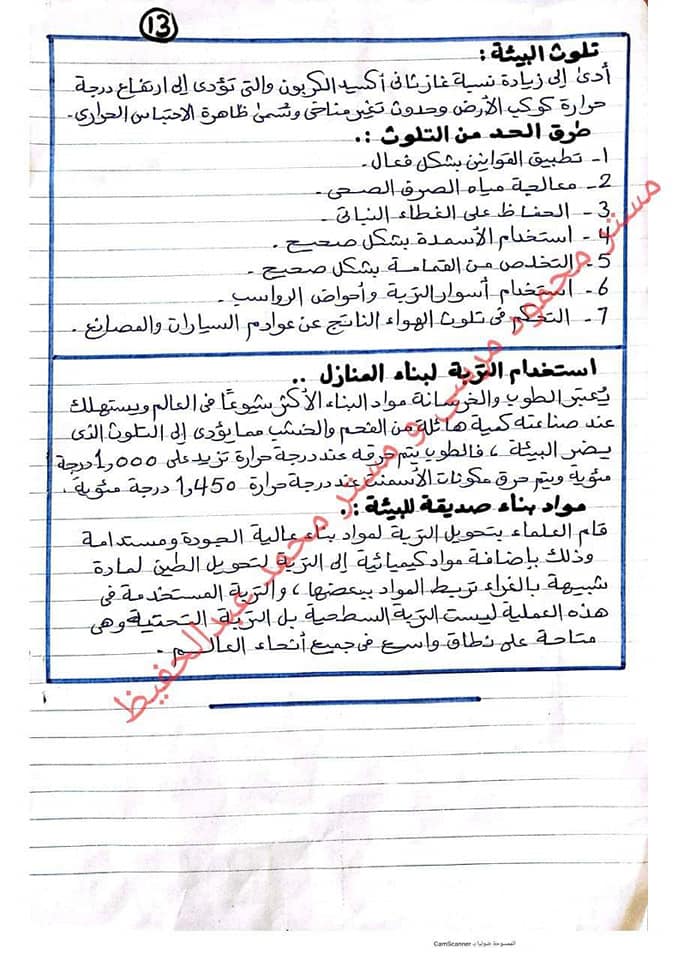 13
تلوث البيئة :
أدى إلى زيادة نسبة غاز ثانى أكسيد الكربون والتى تؤدى إلى ارتفاع درجة
حرارة كوكب الأرض وحدوث تغير مناخى وتسمى ظاهرة الاحتباس الحرارى.
طرق الحد من التلوث :.
1- تطبيق القوانين بشكل فعال.
2- معالجة مياه الصرف الصحى.
3- الحفاظ على الغطاء النباتى.
4- استخدام الأسمدة بشكل صحيح.
5- التخلص من القمامة بشكل صحيح.
6- استخدام أسوار التربة وأحواض الرواسب.
7- التحكم فى تلوث الهواء الناتج عن عوادم السيارات والمصانع.
استخدام التربة لبناء المنازل ..
يعتبر الطوب والخرسانة مواد البناء الأكثر شيوعًا فى العالم ويستهلك
عند صناعته كمية هائلة من الفحم والخشب مما يؤدى إلى التلوث الذى
يضر البيئة ، فالطوب يتم حرقه عند درجة حرارة تزيد على 1,000 درجة
مئوية ويتم حرق مكونات الأسمنت عند درجة حرارة 1,450 درجة مئوية.
مواد بناء صديقة للبيئة :.
قام العلماء بتحويل التربة لمواد بناء عالية الجودة ومستدامة
وذلك بإضافة مواد كيميائية إلى التربة لتحويل الطين لمادة
شبيهة بالغراء تربط المواد ببعضها ، والتربة المستخدمة فى
هذه العملية ليست التربة السطحية بل التربة التحتية وهى
متاحة على نطاق واسع فى جميع أنحاء العالم .
مستر محمود مرسى و مستر محمد عبدالحفيظ
الممسوحة ضوئيا بـ CamScanner